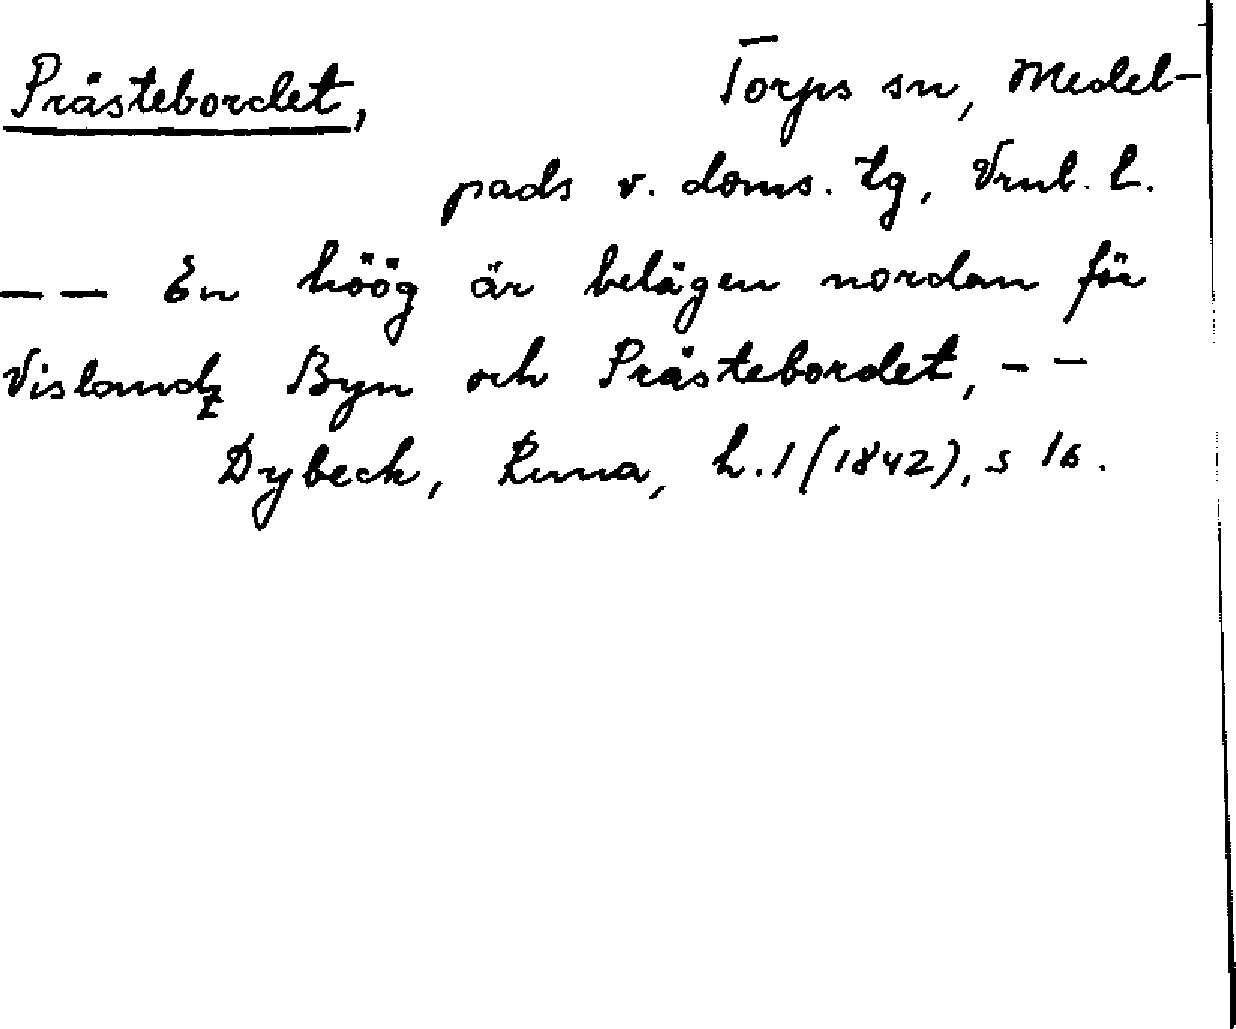 Prästebordet, Torps sn, Medel-
pads v. doms. tg, Vrnl. l.
— — En höög är belägen nordan för
Vislandz Byn och Prästebordet, - -
Dybeck, Runa, h. 1 (1842), s 16.